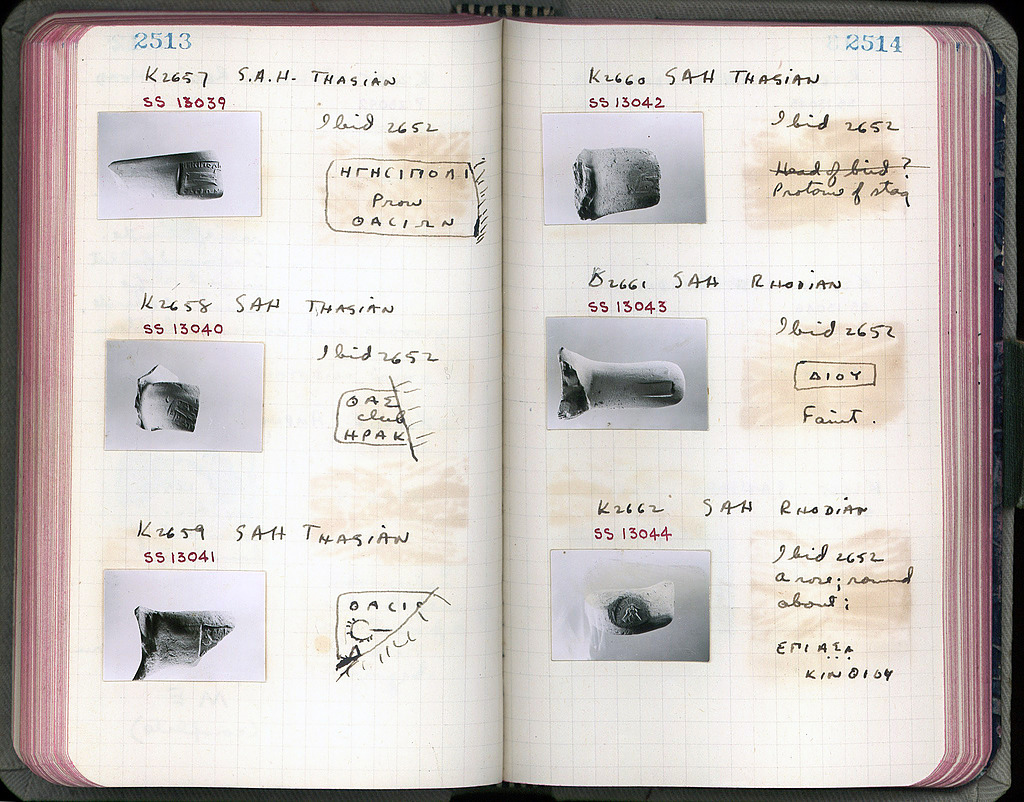 2513
K2657 S.A.H. THASIAN
SS 13039
Ibid 2652
ΗΓΗCΙΠΟΛΙ
Prow
ΘΑCΙΩΝ
K2658 SAH THASIAN
SS 13040
Ibid 2652
ΘΑΣ
club
ΗΡΑΚ
K2659 SAH THASIAN
SS 13041
ΘΑCΙ
2514
K2660 SAH THASIAN
SS 13042
Ibid 2652
Head of bird?
Protome of stag
K2661 SAH RHODIAN
SS 13043
Ibid 2652
ΔΙΟΥ
Faint.
K2662 SAH RHODIAN
SS 13044
Ibid 2652
a rose; round
about:
ΕΠΙ ΑΣΑ
ΚΙΝΘΙΟΥ